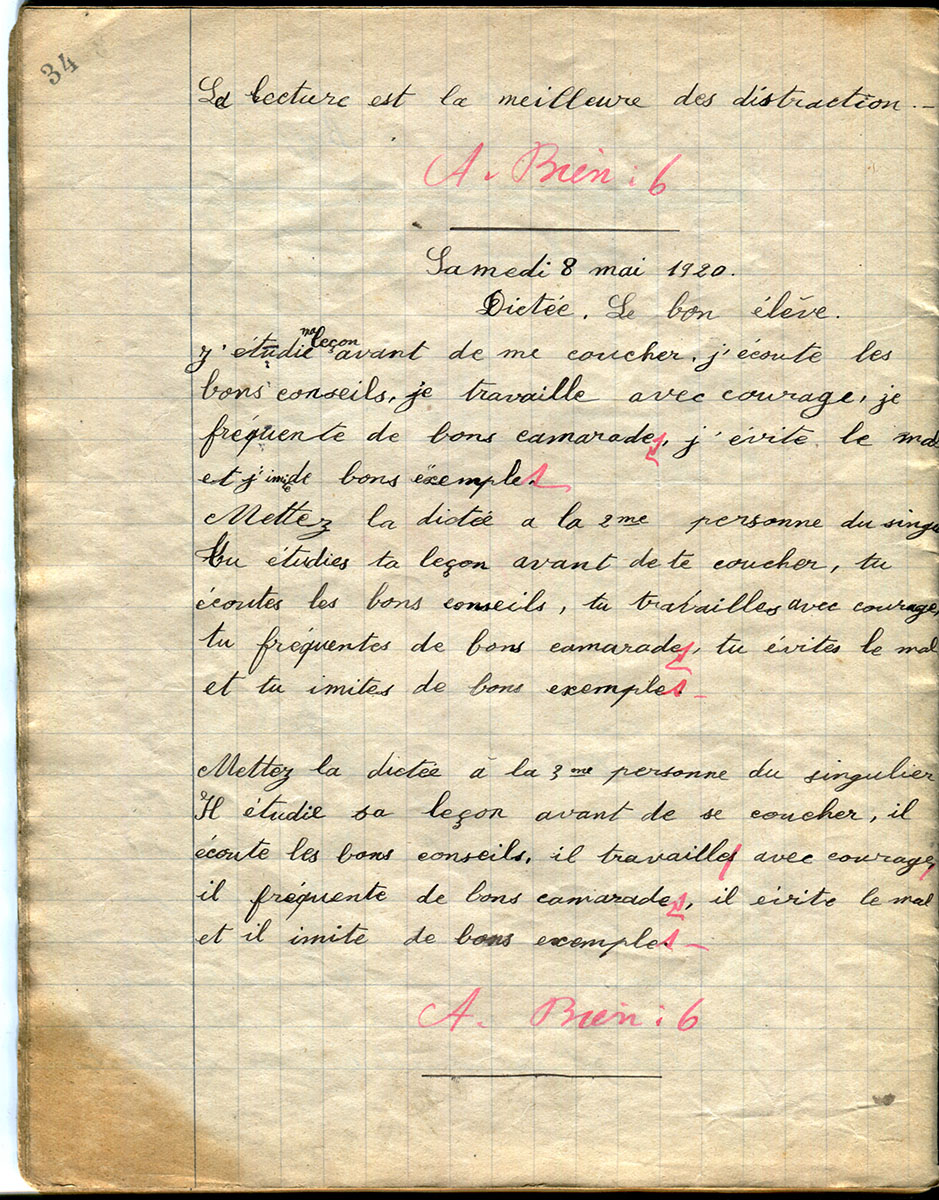 34
La lecture est la meilleure des distraction. -
A. Bien : 6
Samedi 8 mai 1920.
Dictée. Le bon élève.
J'étudie ma leçon avant de me coucher, j'écoute les
bons conseils, je travaille avec courage, je
fréquente de bons camarades, j'évite le mal
et j'imite de bons exemples
Mettez la dictée a la 2me personne du singu
Tu étudies ta leçon avant de te coucher, tu
écoutes les bons conseils, tu travailles avec courage,
tu fréquentes de bons camarades, tu évites le mal
et tu imites de bons exemples. -
Mettez la dictée à la 3me personne du singulier
Il étudie sa leçon avant de se coucher, il
écoute les bons conseils, il travaille avec courage,
il fréquente de bons camarades, il évite le mal
et il imite de bons exemples. -
A. Bien : 6